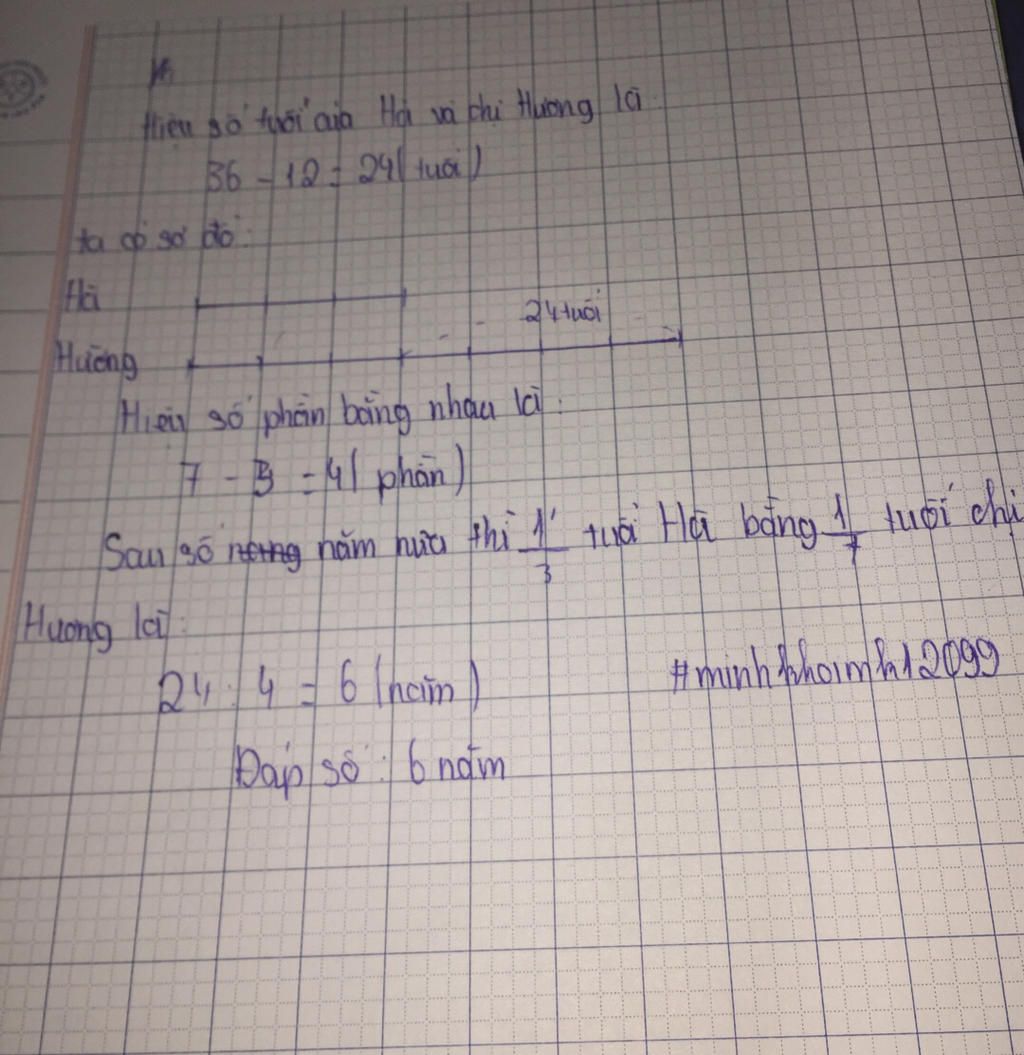 Hiệu số tuổi của Hà và chị Hương là
36 - 12 = 24 ( tuổi )
ta có sơ đồ :
Hà
24 tuổi
Hương
Hiệu số phần bằng nhau là :
7 - 3 = 4 ( phần )
Sau số năm nữa thì 1/3 tuổi Hà bằng 1/7 tuổi chị
Hương là :
24 : 4 = 6 ( năm )
#minhkhoimh12099
Đáp số : 6 năm